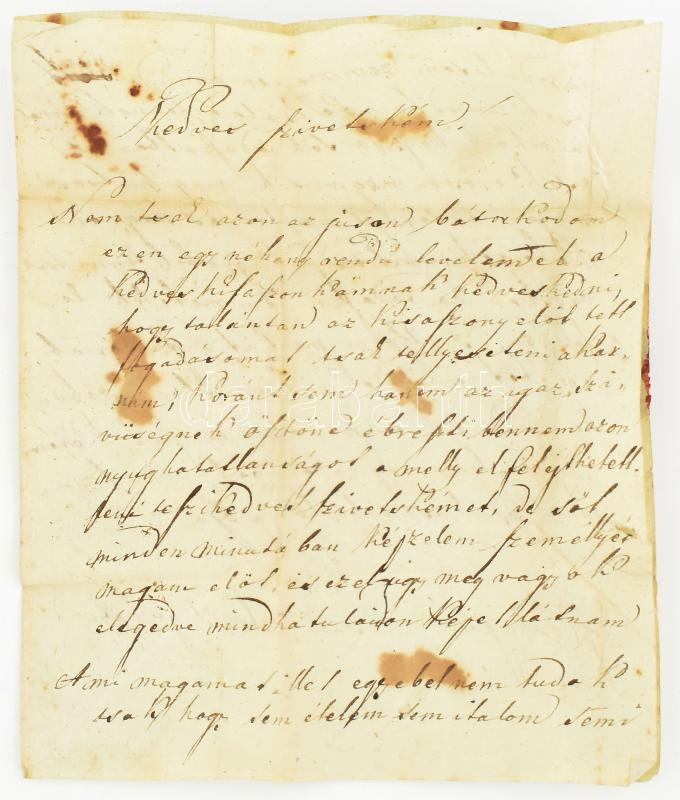 Kedves szivetském!
Nem tsak azon az juson bátorkodom
ezen egy néhány rendü levelemet a
kedves kisaszon kámnak kedveskedni,
hogy talántán az kisaszony elöt tett
fogadásomat tsak tellyesiteni akar-
nám; koránt sem hanem az igaz szi-
vüségnek östöne ébreszti bennem azon
nyughatatlanságot a melly elfelejthetett-
lené teszi kedves szivetskémet, de söt
minden minutában képzelem személlyét
magam elöt, és ezel ugy meg vagyok
elegedve mindha tulaidon képe látnam
Ami magamat illet egyebet nem tudok
tsak hogy sem ételem sem italom semi
darabanth